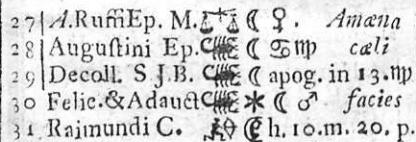 27 A. Ruffi Ep. M. ♎ ☾ ♀. Amæna
28 Auguſtini Ep. ♏ ☾ ♋ ♍ cæli
29 Decoll. S J.B. ♏ ☾ apog. in 13. ♍
30 Felic. & Adauct ♏ ⚹ ☾ ♂ facies
31 Raimundi C. ♐ ☾ h. 10. m. 20. p.